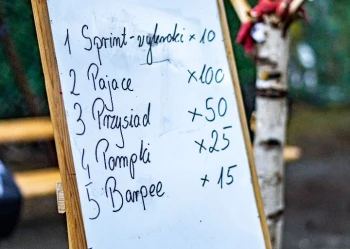 1 Sprint-wykroki x 10
2 Pajace x100
3 Przysiad x50
4 Pompki x25
5 Burpee x 15